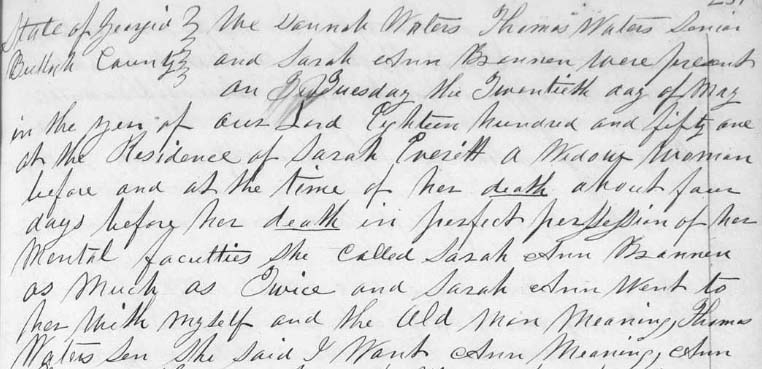 State of Georgia } We Hannah Waters Thomas Waters Senior
Bulloch County } and Sarah Ann Brannen were present
on Tuesday the Twentieth day of May
in the year of our Lord Eighteen hundred and fifty one
at the Residence of Sarah Everitt a Widow woman
before and at the time of her death about four
days before her death in perfect perssession of her
Mental faculties she Called Sarah Ann Brannen
as Much as Twice and Sarah Ann Went to
her With Myself and the Old Man Meaning, Thomas
Waters Sen She said I Want Ann Meaning, Ann